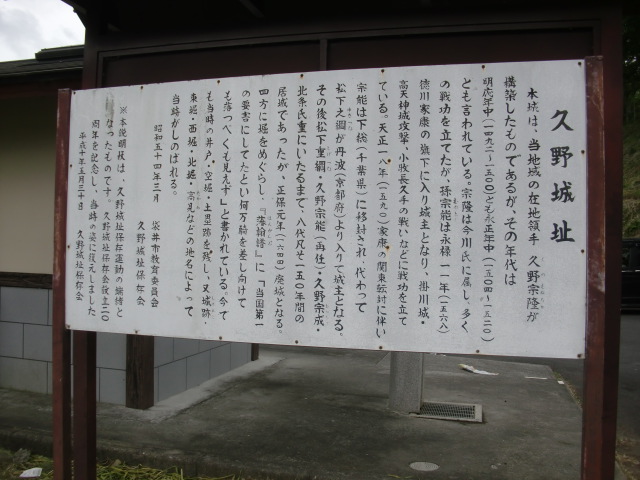 久野城址
本城は、当地域の在地領主 久野宗隆が
構築したものであるが、その年代は
明応年中(一四九二〜一五〇〇)とも永正年中(一五〇四〜一五二〇)
とも言われている。宗隆は今川氏に属し、多く
の戦功を立てたが、孫宗能は永禄一一年(一五六八)
徳川家康の旗下に入り城主となり、掛川城・
高天神城攻撃・小牧長久手の戦いなどに戦功を立て
ている。天正一八年(一五九〇)家康の関東転封に伴い
宗能は下総(千葉県)に移封され、代わって
松下之綱が丹波(京都府)より入りて城主となる。
その後松下重綱・久野宗能(再住)・久野宗成・
北条氏重にいたるまで、八代凡そ一五〇年間の
居城であったが、正保元年(一六四四)廃城となる。
四方に堀をめぐらし、『藩翰譜』に「当国第一
の要害にしてたとい何万騎を差し向けて
も落つべくも見えず」と書かれている。今で
も当時の井戸・空堀・土塁跡を残し、又城跡・
東堀・西堀・北堀・高見などの地名によって
当時がしのばれる。
昭和五十四年三月
袋井市教育委員会
久野城址保存会
※本説明板は、久野城址保存運動の端緒と
なったものです。久野城址保存会設立二〇
周年を記念し、当時の姿に復元しました
平成十年五月三十日 久野城址保存会